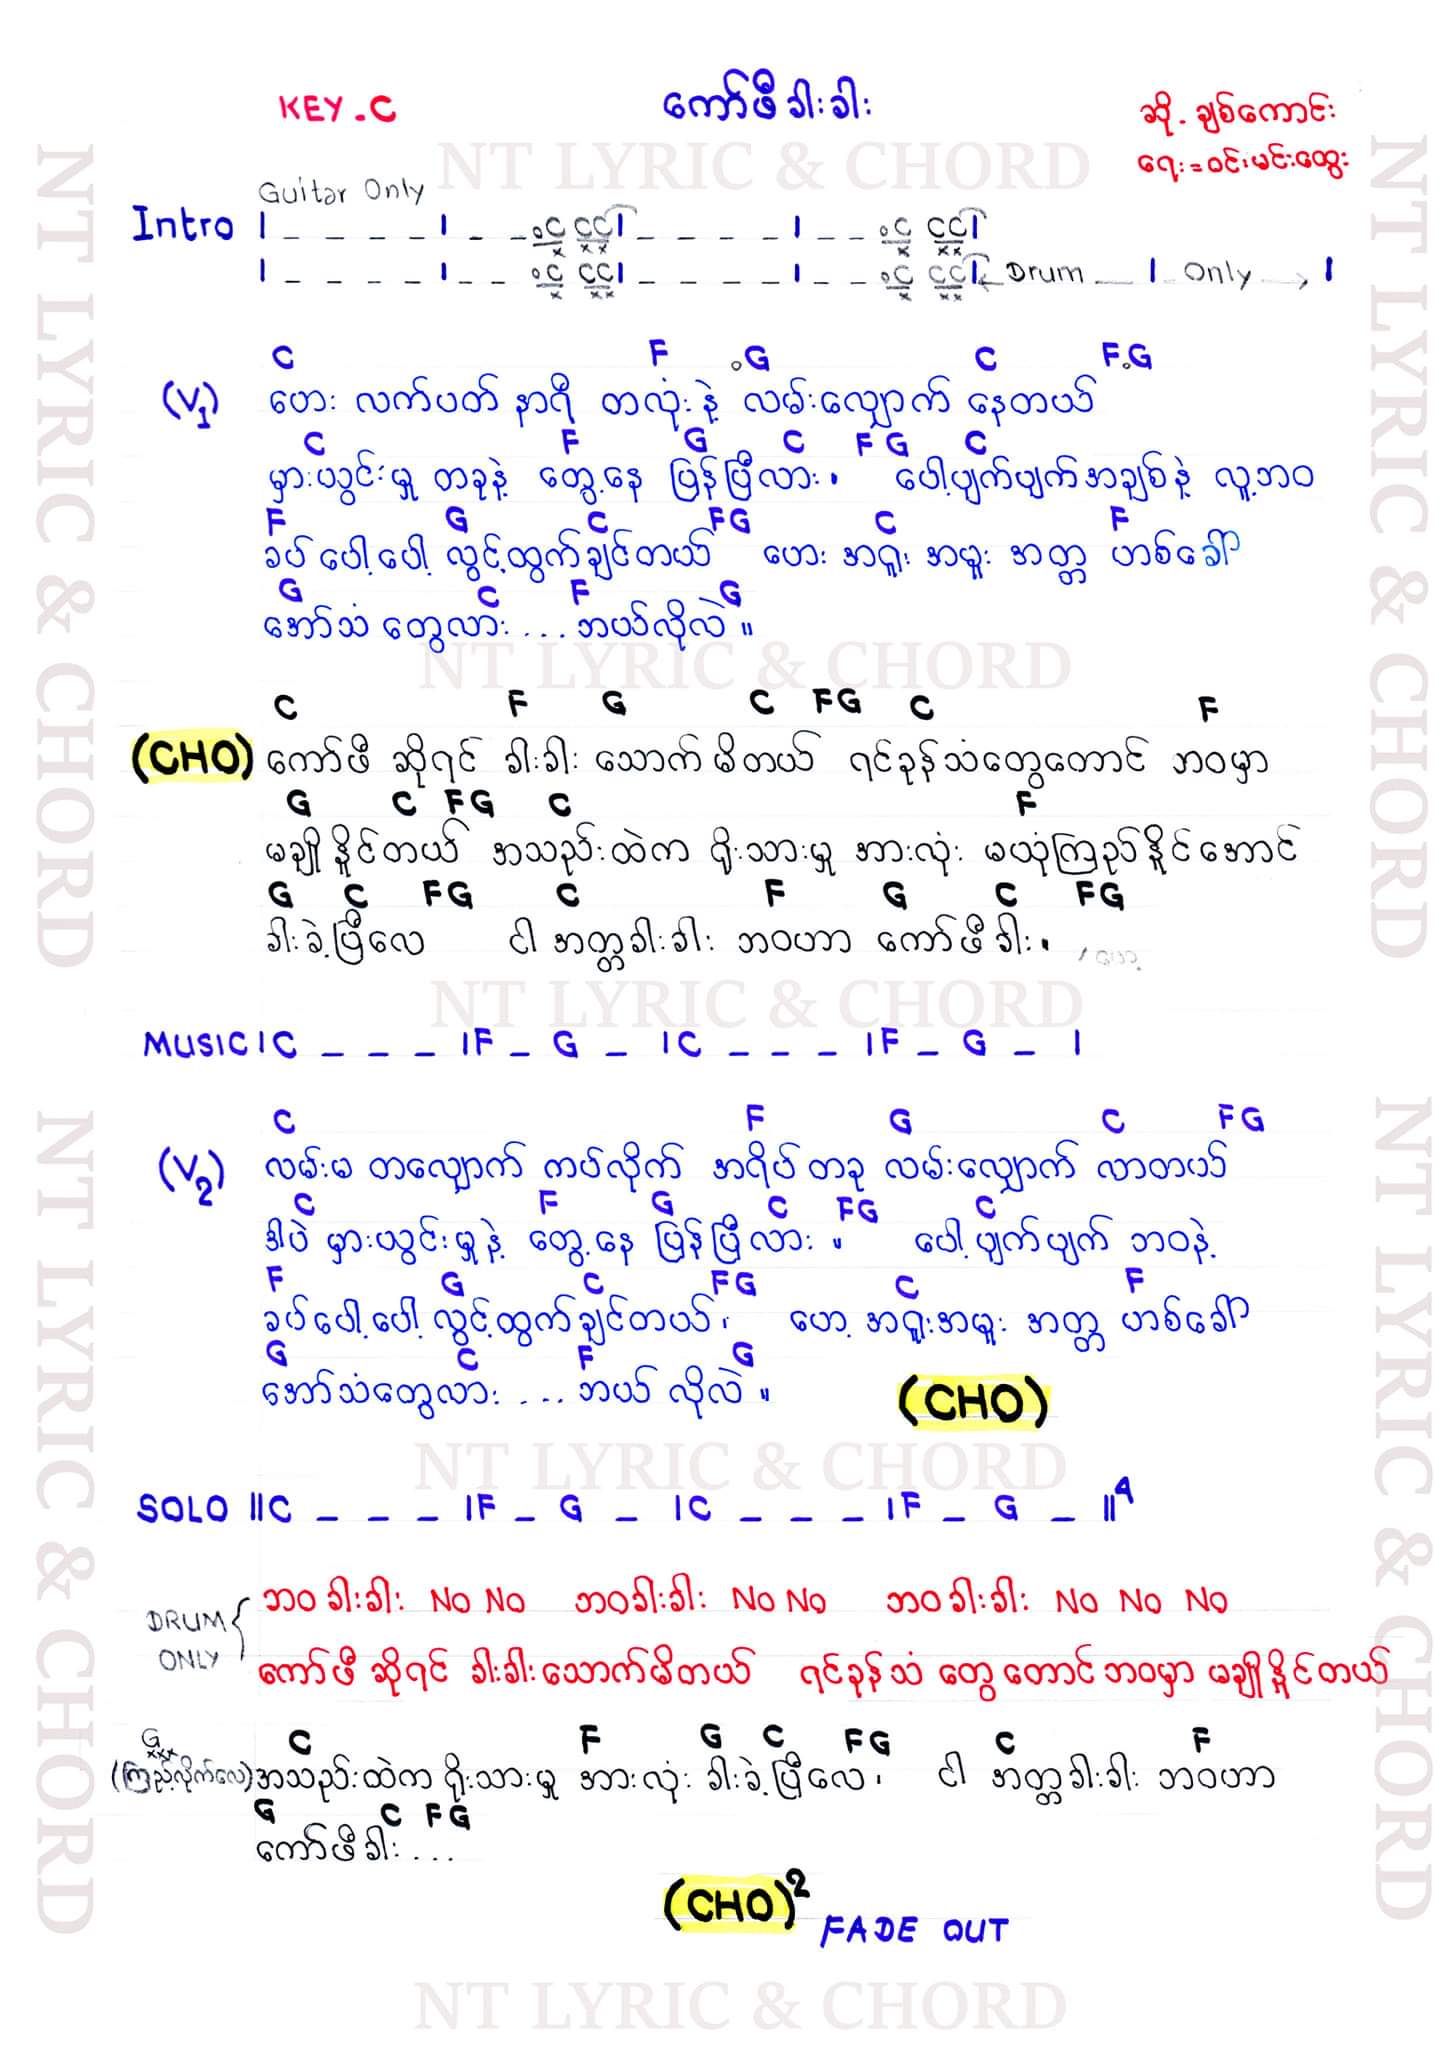 KEY.C ကော်ဖီခါးခါး ဆို. ချစ်ကောင်း
ရေး=ဝင်းမင်းထွေး
NT LYRIC & CHORD
Guitar Only
Intro | _ _ _ _ | _ _ _ C CC | _ _ _ _ | _ _ _ C CC |
| _ _ _ _ | _ _ _ C CC | _ _ _ _ | _ _ _ C CC | Drum __ | Only → |
C F G C F.G
(V1) ဟေး လက်ပတ် နာရီ တလုံး နဲ့ လမ်းလျှောက် နေတယ်
C F G C F G C
မှားယွင်းမှု တခုနဲ့ တွေ့နေ ပြန်ပြီလား။ ပေါ့ပျက်ပျက်အချစ်နဲ့ လူ့ဘဝ
F G C FG C F
ခပ်ပေါ့ပေါ့ လွင့်ထွက်ချင်တယ် ဟေး အရူး အမူး အတ္တ ဟစ်ခေါ်
G C F G
အော်သံ တွေလား ... ဘယ်လိုလဲ။
NT LYRIC & CHORD
C F G C FG C F
(CHO) ကော်ဖီ ဆိုရင် ခါးခါး သောက်မိတယ် ရင်ခုန်သံတွေတောင် ဘဝမှာ
G C FG C F
မချိုနိုင်တယ် အသည်းထဲက ရိုးသားမှု အားလုံး မယုံကြည်နိုင်အောင်
G C FG C F G C FG
ခါးခဲ့ပြီလေ ငါ အတ္တခါးခါး ဘဝဟာ ကော်ဖီခါး။ / ဟော့
NT LYRIC & CHORD
MUSIC | C _ _ _ | F _ G _ | C _ _ _ | F _ G _ |
C F G C FG
(V2) လမ်းမ တလျှောက် ကပ်လိုက် အရိပ်တခု လမ်းလျှောက် လာတယ်
C F G C FG C
ဒါပဲ မှားယွင်းမှုနဲ့ တွေ့နေ ပြန်ပြီလား။ ပေါ့ပျက်ပျက် ဘဝနဲ့
F G C FG C F
ခပ်ပေါ့ပေါ့ လွင့်ထွက်ချင်တယ်၊ ဟေ့ အရူးအမူး အတ္တ ဟစ်ခေါ်
G C F G
အော်သံတွေလား ... ဘယ် လိုလဲ။ (CHO)
NT LYRIC & CHORD
SOLO ||C _ _ _ | F _ G _ | C _ _ _ | F _ G _ ||4
ဘဝခါးခါး NO NO ဘဝခါးခါး NO NO ဘဝခါးခါး NO NO NO
DRUM ONLY
ကော်ဖီ ဆိုရင် ခါးခါးသောက်မိတယ် ရင်ခုန်သံ တွေတောင်ဘဝမှာ မချိုနိုင်တယ်
G C F G C FG C F
(ကြည့်လိုက်လေ) အသည်းထဲက ရိုးသားမှု အားလုံး ခါးခဲ့ပြီလေ၊ ငါ အတ္တခါးခါး ဘဝဟာ
G C FG
ကော်ဖီခါး ...
(CHO)2 FADE OUT
NT LYRIC & CHORD
NT LYRIC & CHORD
NT LYRIC & CHORD
NT LYRIC & CHORD
NT LYRIC & CHORD